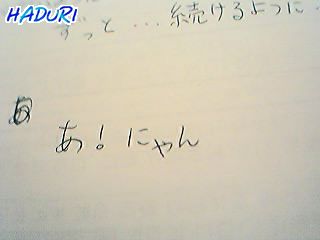 HADURI
ずっと…続けるように…
あ！にゃん